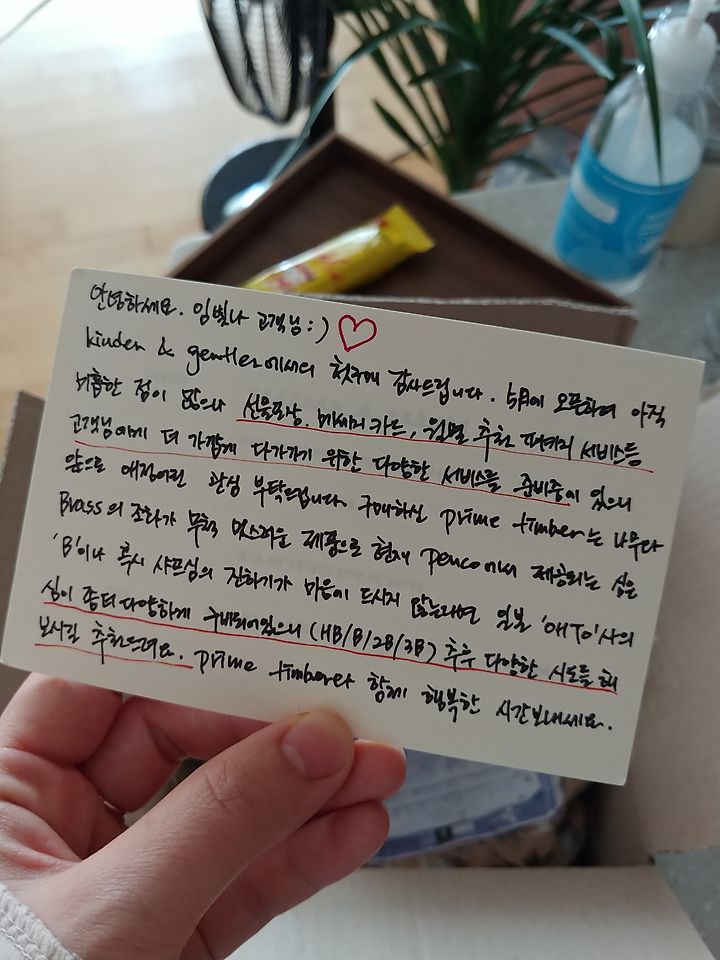 안녕하세요. 임빛나 고객님 : )
kinder & gentler에서의 첫구매 감사드립니다. 5월에 오픈하여 아직
미흡한 점이 많으나 선물포장, 메세지 카드, 월별 추천 패키지 서비스등
고객님에게 더 가깝게 다가가기 위한 다양한 서비스를 준비중이 있으니
앞으로 애정어린 관심 부탁드립니다. 구매하신 prime timber는 나무와
Brass의 조화가 무척 멋스러운 제품으로 현재 penco에서 제공되는 심은
'B'이나 혹시 샤프심의 진하기가 마음이 드시지 않는다면 일본 'OHTO'사의
심이 좀더 다양하게 구비되어있으니 (HB/B/2B/3B) 추후 다양한 시도를 해
보시길 추천드려요. prime timber와 함께 행복한 시간보내세요.